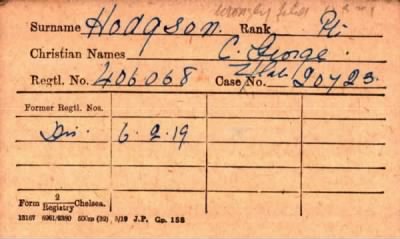 wrongly filed
Surname Hodgson. Rank Pte
Christian Names C. George.
Regtl. No. 406068 Case No. 20723.
Former Regtl. Nos.
Dis. 6.2.19
Form 2/Registry Chelsea.
13167 6961/9380 500m (32) 5/19 J.P. Gp. 158